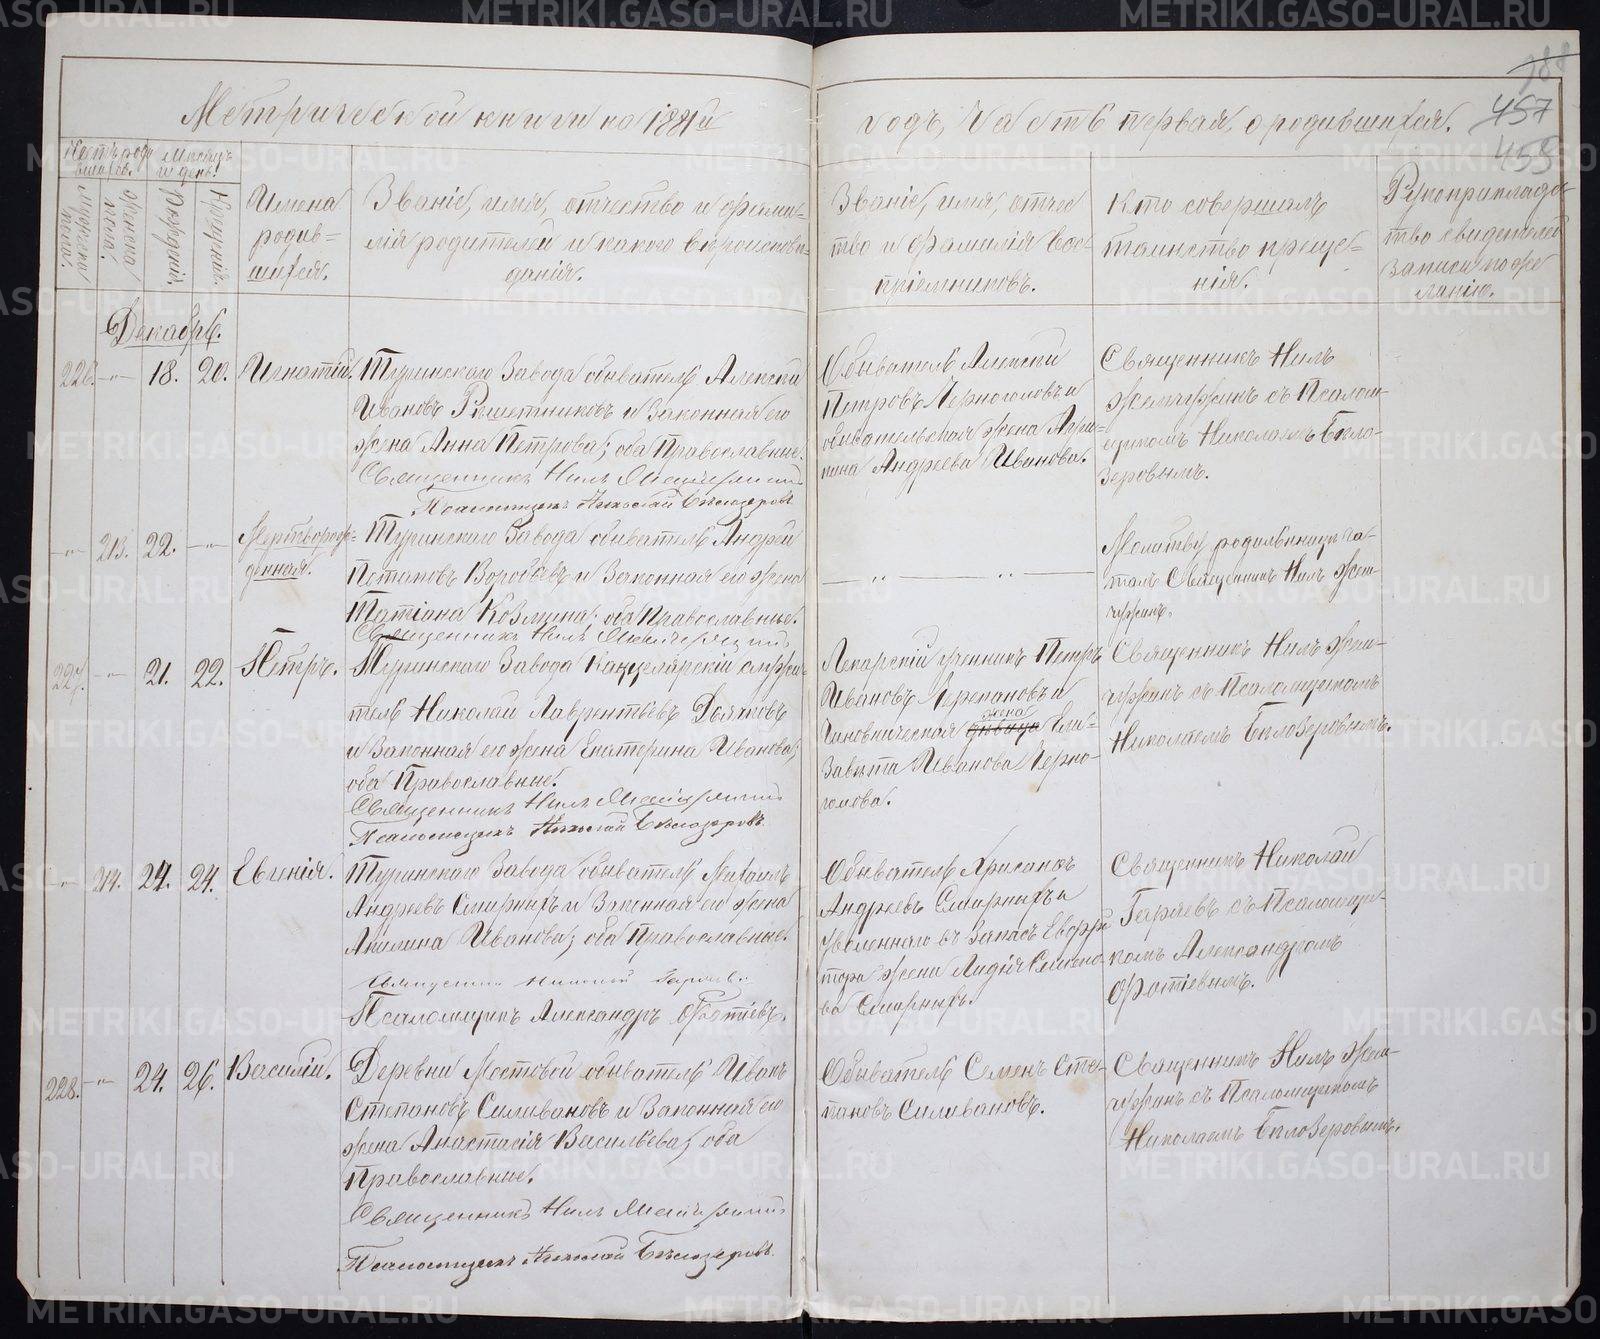 Метрической книги на 1881й
годъ, часть первая, о родившихся.
188
457
455
Счетъ роди
вшихся.
Мужеска
пола.
Женска
пола.
Мѣсяцъ
и день.
Рожденія.
Крещенія.
Имена
родив=
шихся.
Званіе, имя, отчество и фами=
лія родителей и какого вѣроиспове-
данія.
Званіе, имя, отчес
тво и фамилія вос-
пріемниковъ.
Кто совершалъ
таинство креще=
нія.
Рукоприкладс
тво свидетелей
записи по же
ланію.
Декабрь.
226. —"— 18. 20. Игнатій.
Туринскаго Завода обыватель Алексѣй
Ивановъ Рѣшетниковъ и законная его
жена Анна Петрова; оба Православные.
Священникъ Нилъ
Псаломщикъ Николай Бѣлозеровъ
Обыватель Алексѣй
Петровъ Черноголовъ и
обывательская жена Ири-
на Андреева Иванова.
Священникъ Нилъ
Жемчужинъ съ Псалом-
щикомъ Николаемъ Бѣло-
зеровымъ.
—"— 213. 22. —"— Мертворож=
денная.
Туринскаго Завода обыватель Андрей
Потаповъ Воробьевъ и законная его жена
Татіана Козмина; оба Православные.
Священникъ Нилъ
— " — " —
Молитву родильницы чи-
талъ Священникъ Нилъ Жем-
чужинъ.
227. —"— 21. 22. Петръ.
Туринскаго Завода Канцелярскій служи-
тель Николай Лаврентьевъ
и законная его жена Екатерина Иванова;
оба Православные.
Священникъ Нилъ
Псаломщикъ Николай Бѣлозеровъ
Лекарскій ученикъ Петръ
Ивановъ Черепановъ и
жена
Чиновническая дѣвица Ели-
завета Иванова Черно-
голова.
Священникъ Нилъ Жем-
чужинъ съ Псаломщикомъ
Николаемъ Бѣлозеровымъ.
—"— 214. 24. 24. Евгенія.
Туринскаго Завода обыватель Михаилъ
Андреевъ Смирныхъ и законная его жена
Акилина Иванова; оба Православные.
Священникъ Николай Гаряевъ
Псаломщикъ Александръ Фотіевъ.
Обыватель Хрисанфъ
Андреевъ Смирныхъ и
уволеннаго въ запасъ
жена Лидія Семено-
ва Смирныхъ.
Священникъ Николай
Гаряевъ съ Псаломщи-
комъ Александромъ
Фотіевымъ.
228. —"— 24. 26. Василій.
Деревни Мостовой обыватель Иванъ
Степановъ Силивановъ и законная его
жена Анастасія Васильева; оба
Православные.
Священникъ Нилъ
Псаломщикъ Николай Бѣлозеровъ.
Обыватель Семенъ Сте-
пановъ Силивановъ.
Священникъ Нилъ Жем-
чужинъ съ Псаломщикомъ
Николаемъ Бѣлозеровымъ.
METRIKI.GASO-URAL.RU